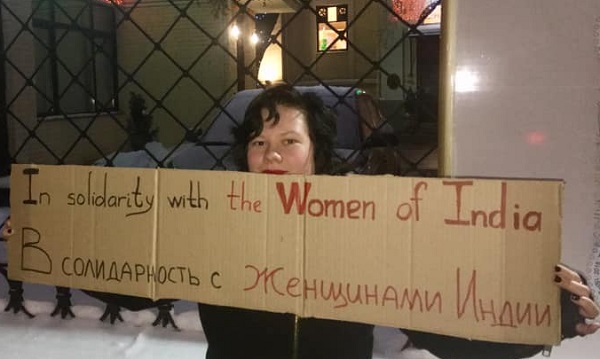 In solidarity with the Women of India
В солидарность с Женщинами Индии